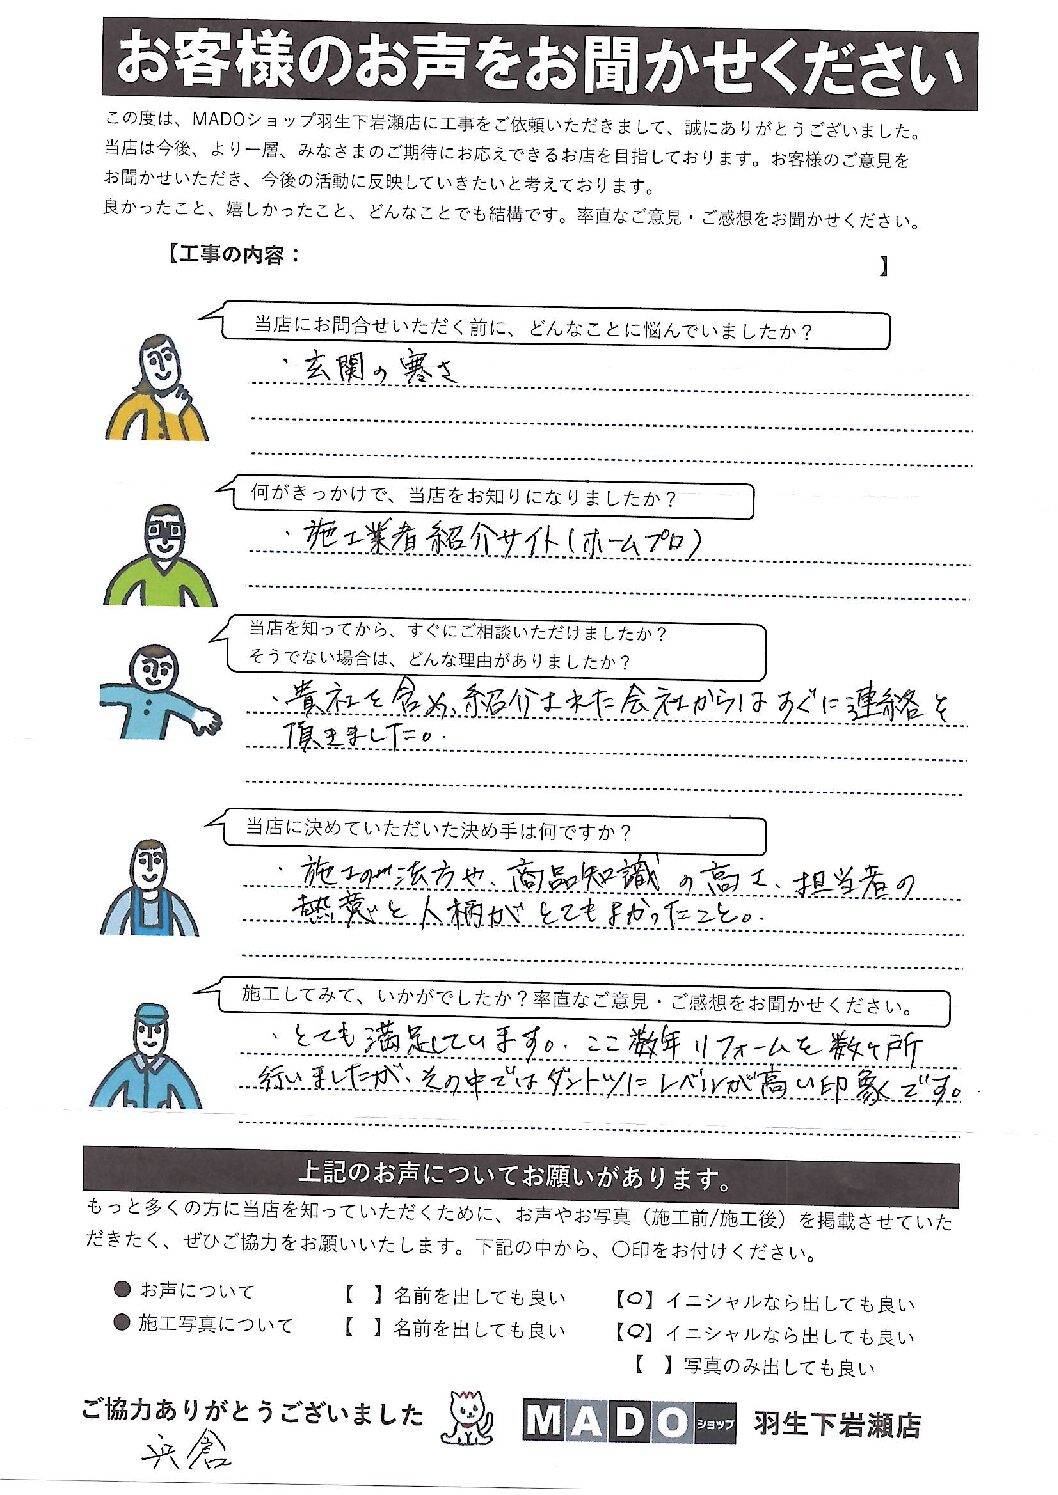 お客様のお声をお聞かせください
この度は、MADOショップ羽生下岩瀬店に工事をご依頼いただきまして、誠にありがとうございました。
当店は今後、より一層、みなさまのご期待にお応えできるお店を目指しております。お客様のご意見を
お聞かせいただき、今後の活動に反映していきたいと考えております。
良かったこと、嬉しかったこと、どんなことでも結構です。率直なご意見・ご感想をお聞かせください。
【工事の内容： 】
当店にお問合せいただく前に、どんなことに悩んでいましたか？
・玄関の寒さ
何がきっかけで、当店をお知りになりましたか？
・施工業者紹介サイト(ホームプロ)
当店を知ってから、すぐにご相談いただけましたか？
そうでない場合は、どんな理由がありましたか？
・貴社を含め、紹介された会社からはすぐに連絡を
頂きました。
当店に決めていただいた決め手は何ですか？
・施工の方や、商品知識の高さ、担当者の
熱意と人柄がとてもよかったこと。
施工してみて、いかがでしたか？率直なご意見・ご感想をお聞かせください。
・とても満足しています。ここ数年リフォームを数ヶ所
行いましたが、その中ではダントツにレベルが高い印象です。
上記のお声についてお願いがあります。
もっと多くの方に当店を知っていただくために、お声やお写真（施工前/施工後）を掲載させていた
だきたく、ぜひご協力をお願いいたします。下記の中から、〇印をお付けください。
● お声について 【 】名前を出しても良い 【〇】イニシャルなら出しても良い
● 施工写真について 【 】名前を出しても良い 【〇】イニシャルなら出しても良い
【 】写真のみ出しても良い
ご協力ありがとうございました MADOショップ 羽生下岩瀬店